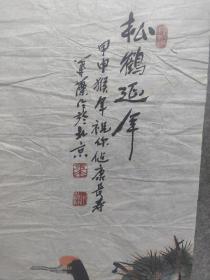 松鹤延年
甲申猴年祝你健康長寿
作於北京